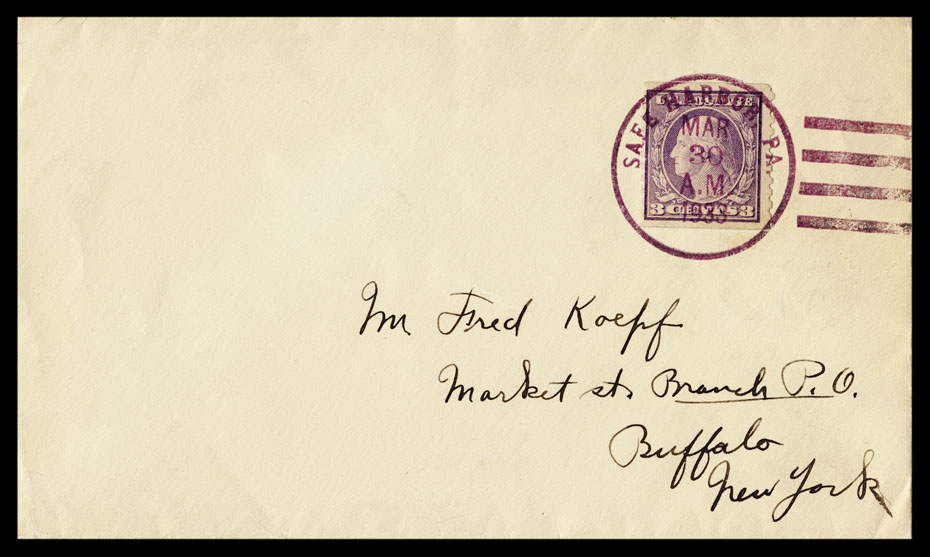 SAFE HARBOR, PA.
MAR
30
A.M.
1933
3 CENTS 3
Mr Fred Koepf
Market st. Branch P.O.
Buffalo
New York